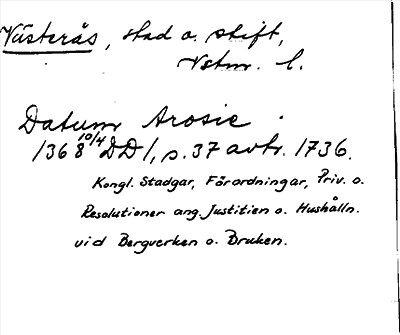 Västerås, stad o. stift,
Vstm. l.
Datum Arosie.
1368 10/4 DD 1, s. 37 avtr. 1736.
Kongl. Stadgar, Förordningar, Priv. o.
Resolutioner ang. Justitien o. Hushålln.
vid Bergverken o. Bruken.